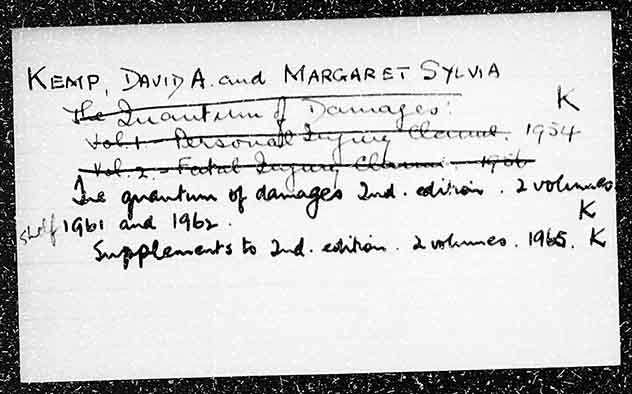 KEMP, DAVID A. and MARGARET SYLVIA
The Quantum of Damages. K
Vol. 1 - Personal Injury Claims. 1954
Vol. 2. - Fatal Injury Claims. 1956
The quantum of damages 2nd. edition. 2 volumes
shelf 1961 and 1962. K
Supplements to 2nd. edition. 2 volumes. 1965. K